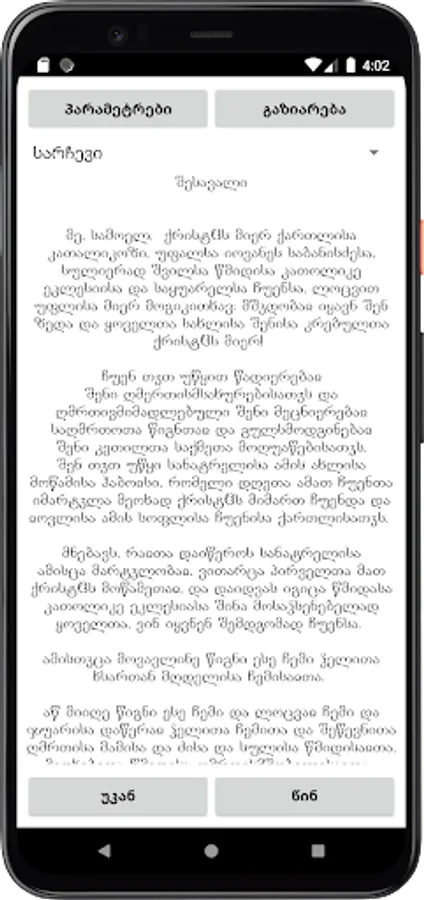 4:02
პარამეტრები
გაზიარება
სარჩევი
შესავალი
მე, სამოელ, ქრისტჱს მიერ ქართლისა
კათალიკოზი, უფალსა იოვანეს საბანისძესა,
სულიერად შვილსა წმიდისა კათოლიკე
ეკლესიისა და საყუარელსა ჩუენსა, ლოცვით
უფლისა მიერ მოგიკითხავ: მშჳდობაჲ იყავნ შენ
ზედა და ყოველთა სახლისა შენისა კრებულთა
ქრისტჱს მიერ!
ჩუენ თჳთ უწყით წადიერებაჲ
შენი ღმერთისმსახურებისათჳს და
ღმრთივმიმადლებული შენი მეცნიერებაჲ
საღმრთოთა წიგნთაჲ და გულსმოდგინებაჲ
შენი კეთილთა საქმეთა მოღუაწებისათჳს.
შენ თჳთ უწყი სანატრელისა ამის ახლისა
მოწამისა ჰაბოჲსი, რომელი დღეთა ამათ ჩუენთა
იმარტჳლა მეოხად ქრისტჱს მიმართ ჩუენდა და
ყოვლისა ამის სოფლისა ჩუენისა ქართლისათჳს.
მნებავს, რაჲთა დაიწეროს სანატრელისა
ამისცა მარტჳლობაჲ, ვითარცა პირველთა მათ
ქრისტჱს მოწამეთაჲ, და დაიდვას იგიცა წმიდასა
კათოლიკე ეკლესიასა შინა მოსაჴსენებელად
ყოველთა, ვინ იყვნენ შემდგომად ჩუენსა.
ამისთჳცა მოვავლინე წიგნი ესე ჩემი ჴელითა
ჩსართან მღდელისა ჩემისაჲთა.
აწ მიიღე წიგნი ესე ჩემი და ლოცვაჲ ჩემი და
ჯუარისა დაწერაჲ ჴელითა ჩემითა და შეწევნითა
ღმრთისა მამისა და ძისა და სულისა წმიდისაჲთა,
უკან
წინ